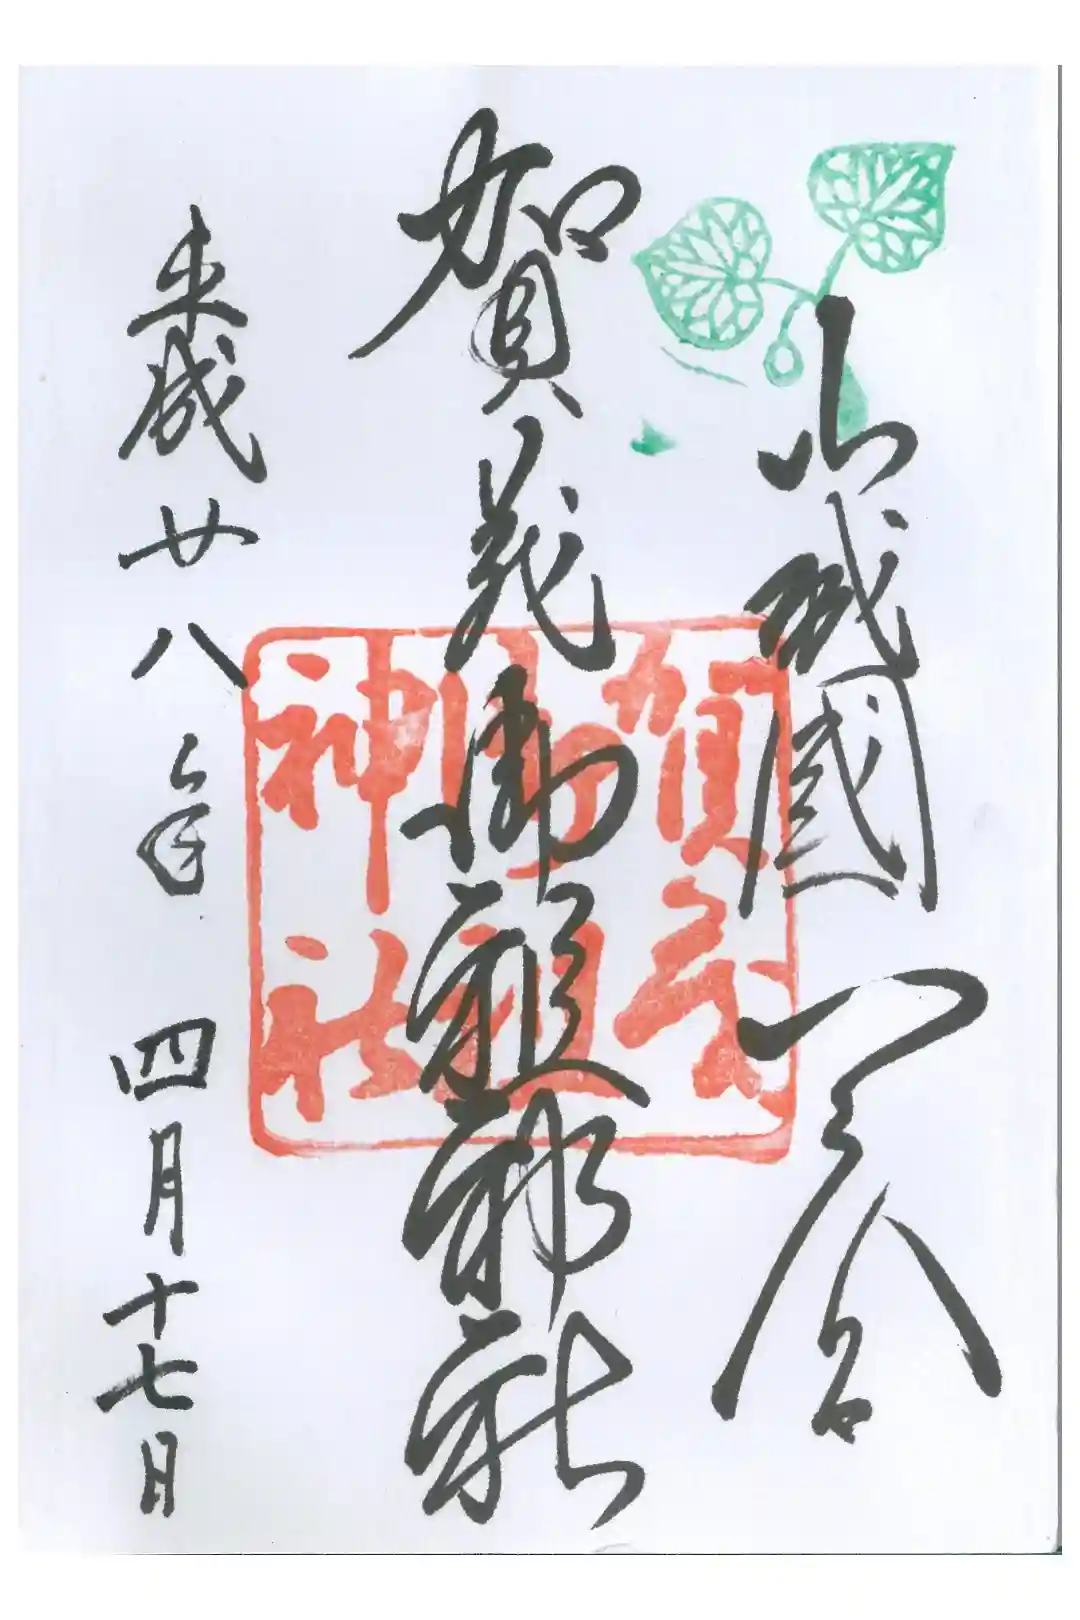 山城國一之宮
賀茂御祖神社
平成廿八年四月十七日
賀茂
御祖
神社